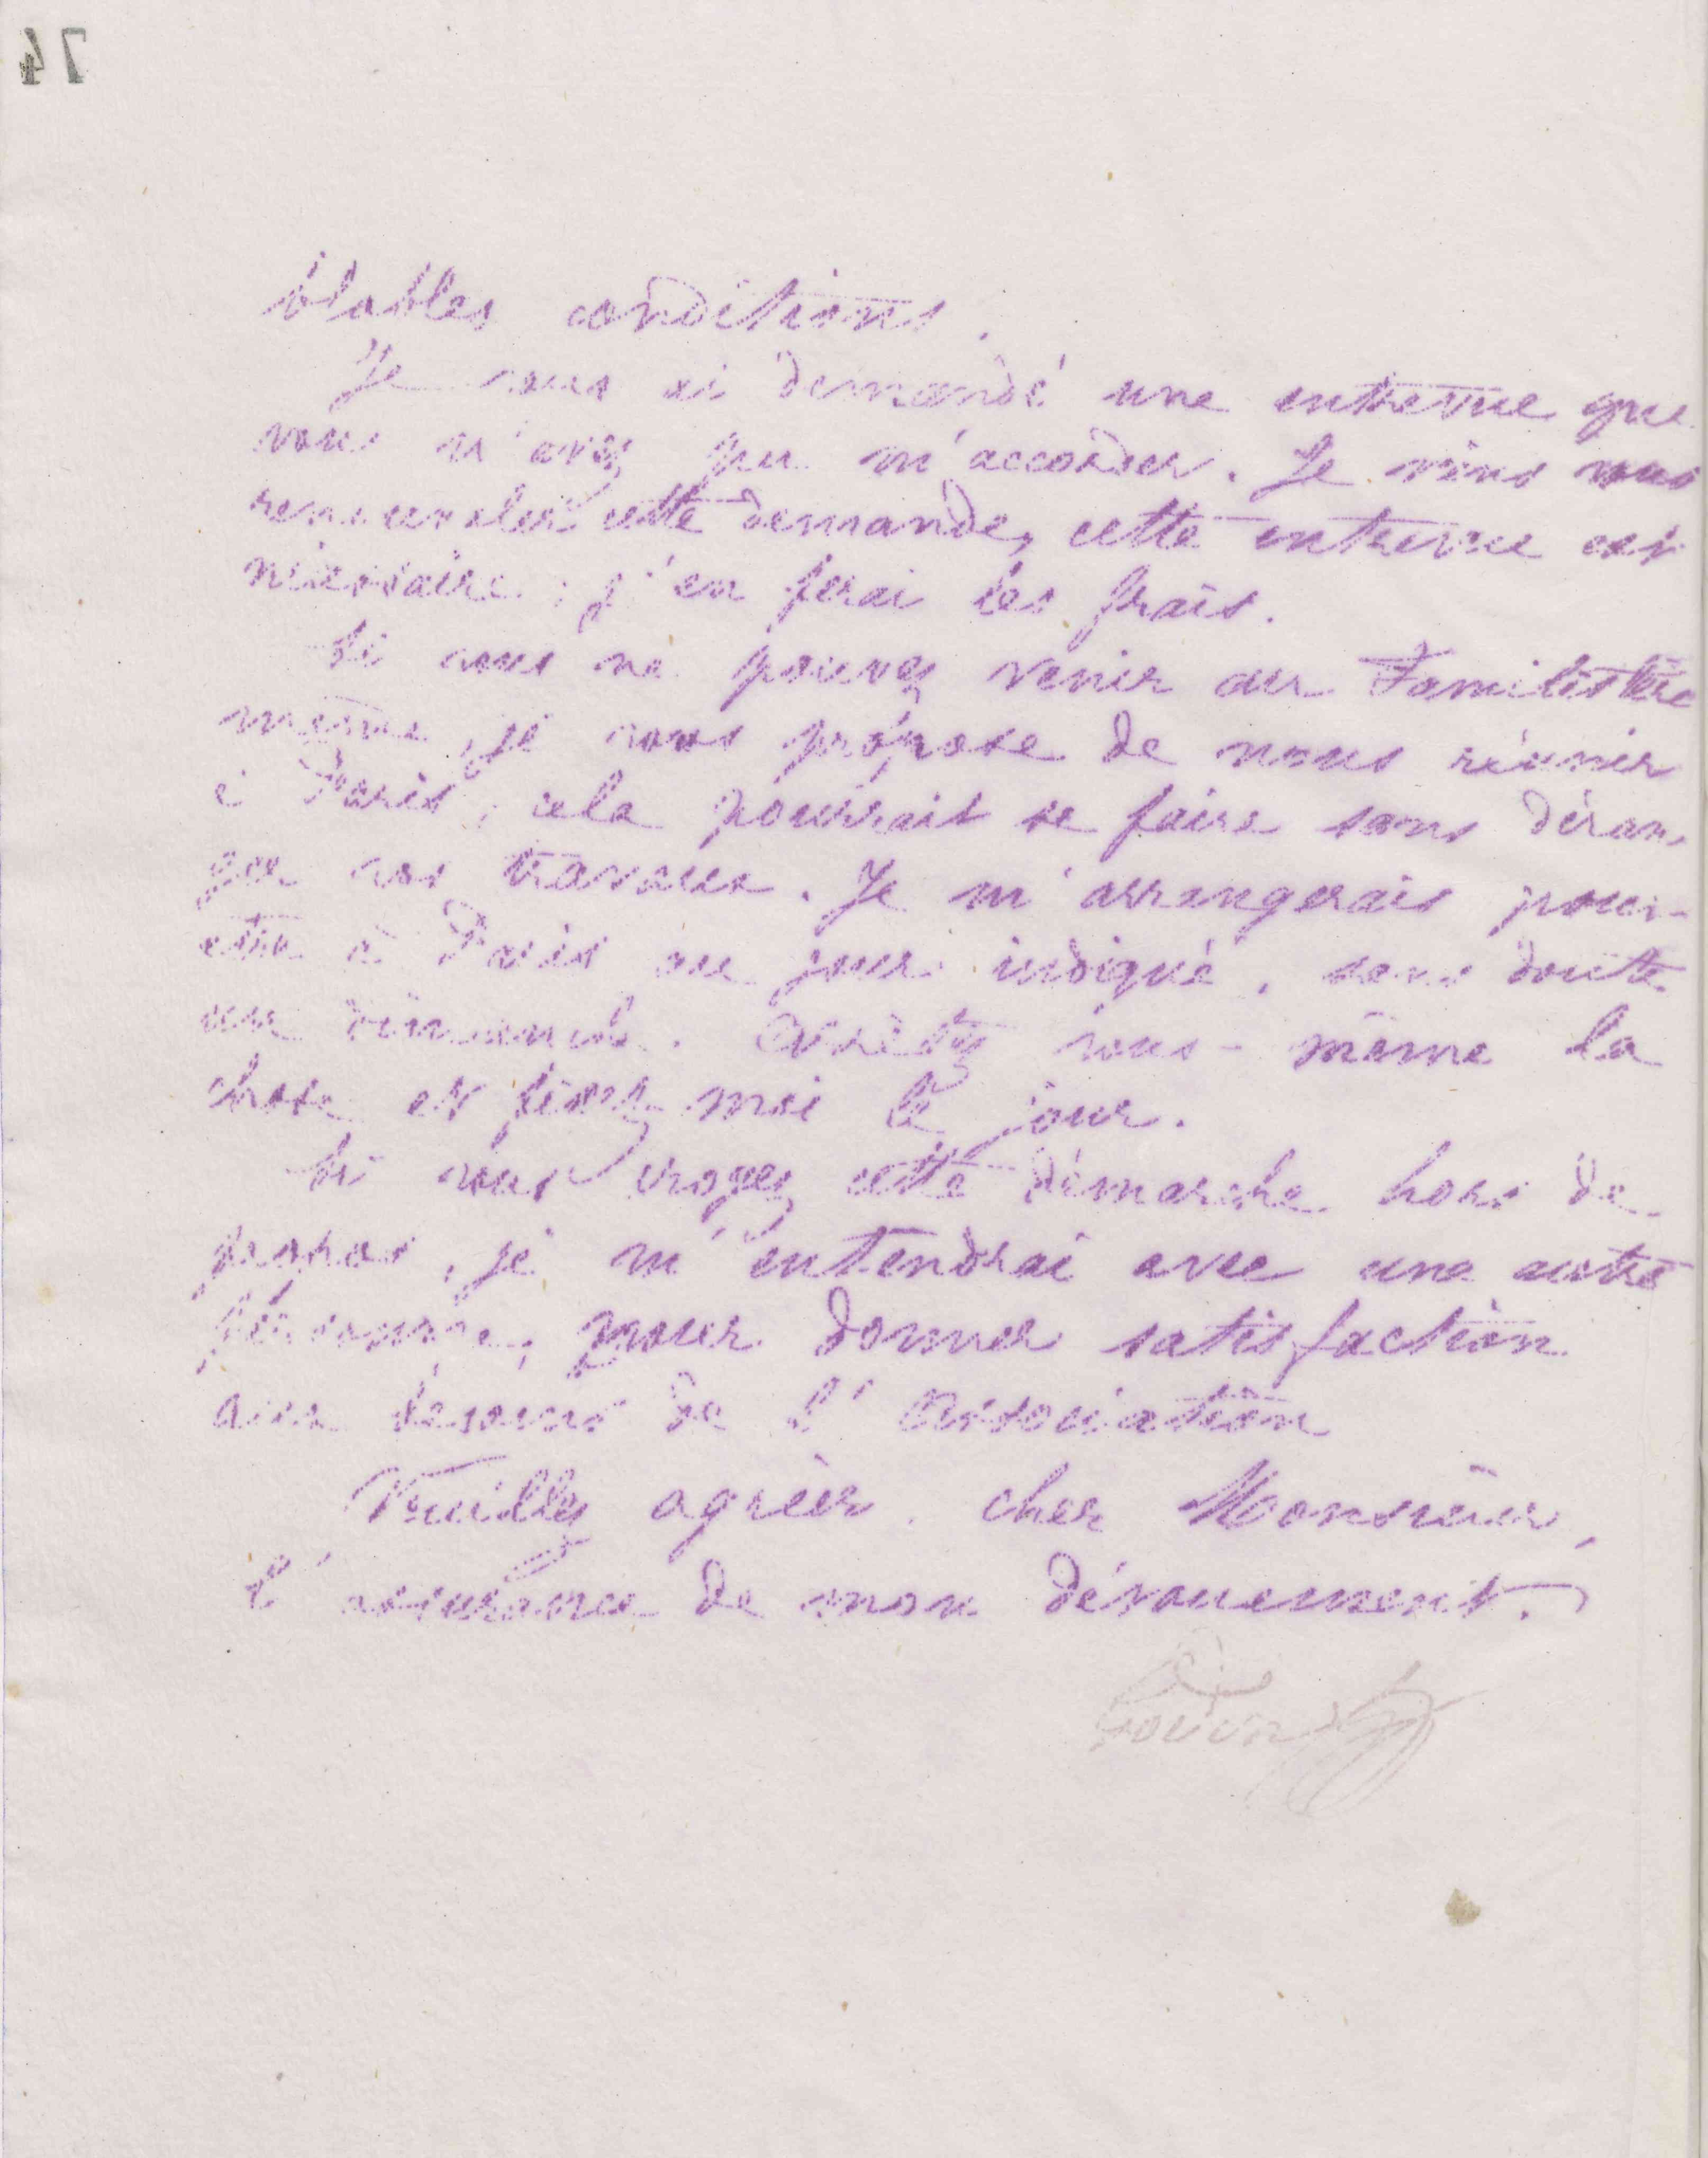 74
conditions.
Je vous ai demandé une entrevue que
vous n'avez pu m'accorder. Je viens vous
renouveler cette demande, cette entrevue est
nécessaire ; j'en ferai les frais.
Si vous ne pouvez venir au Familistère
même, je vous propose de nous réunir
à Paris, cela pourrait se faire sans déran
ger vos travaux. Je m'arrangerais pour
être à Paris au jour indiqué, sans doute
un dimanche. Arrêtez vous-même la
chose et fixez moi le jour.
Si vous croyez cette démarche hors de
propos, je m'entendrai avec une autre
personne, pour donner satisfaction
aux besoins de l'Association
Veuillez agréer, cher Monsieur,
l'assurance de mon dévouement.
Godin